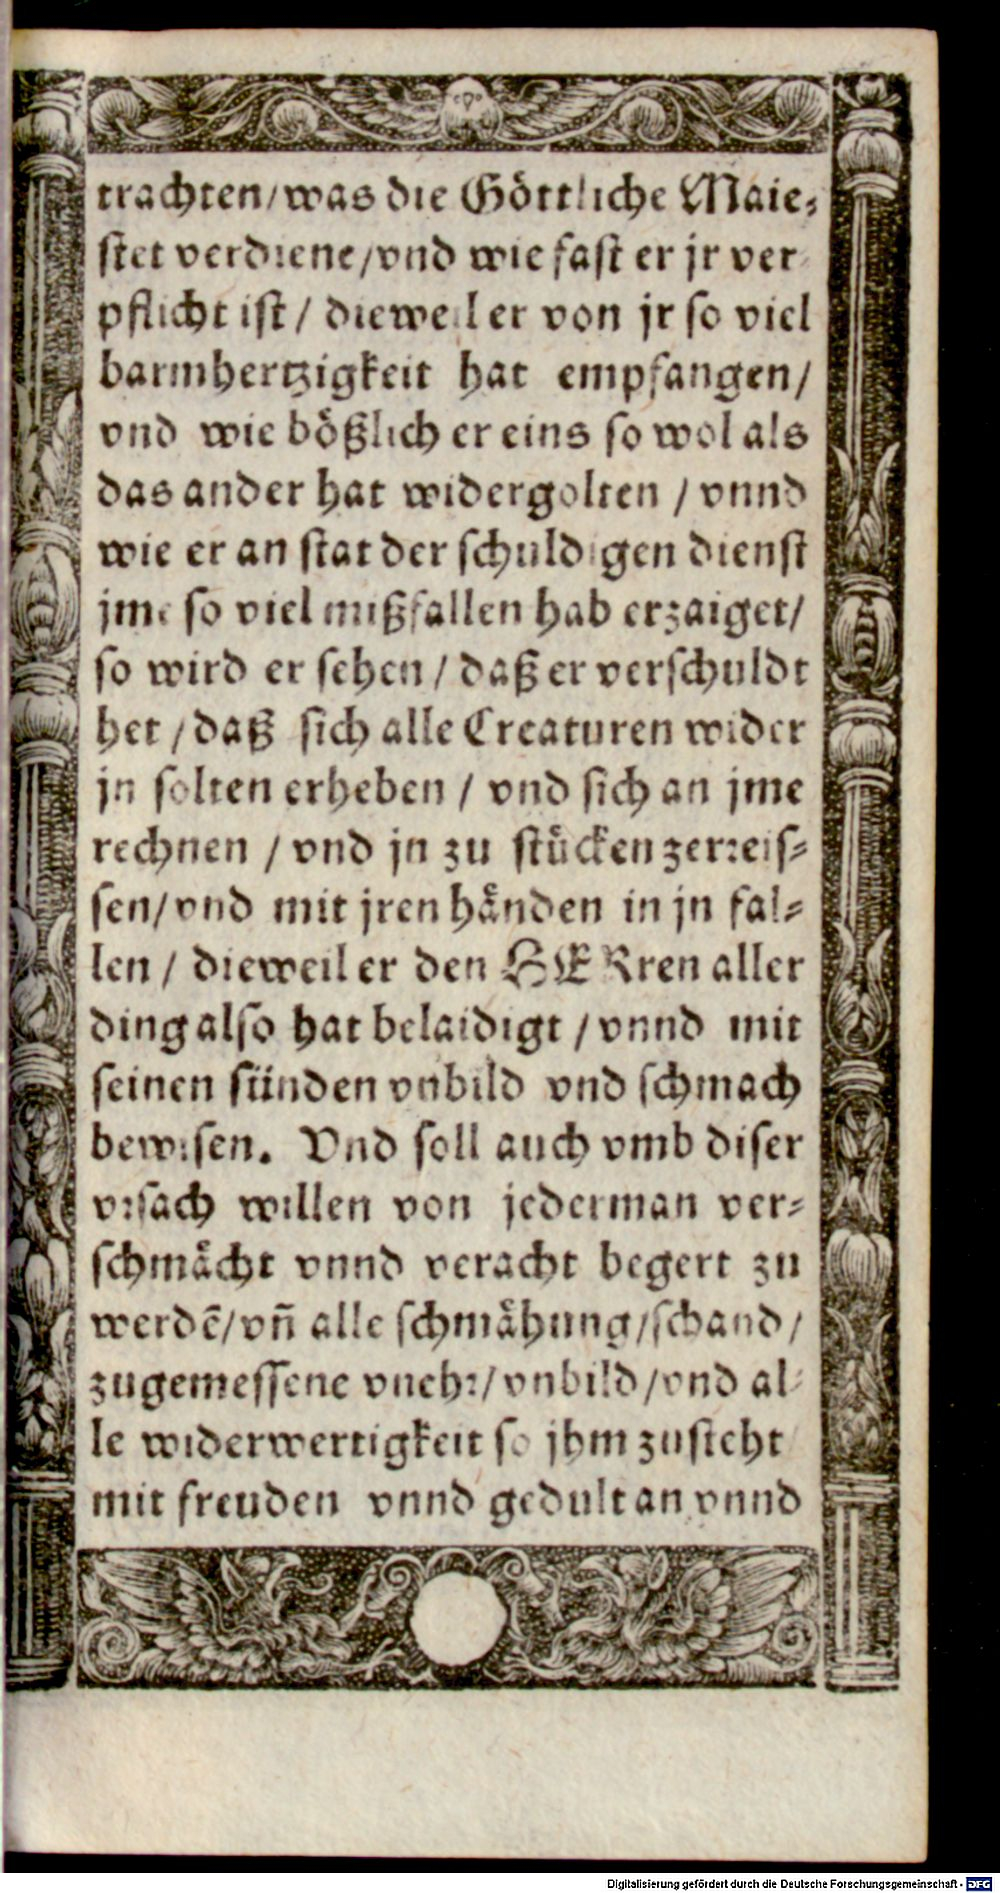 trachten/was die Göttliche Maie-
stet verdiene/vnd wie fast er jr ver-
pflicht ist/ dieweil er von jr so viel
barmhertzigkeit hat empfangen/
vnd wie bößlich er eins so wol als
das ander hat widergolten / vnnd
wie er an stat der schuldigen dienst
jme so viel mißfallen hab erzaiget/
so wird er sehen / daß er verschuldt
het / daß sich alle Creaturen wider
jn solten erheben / vnd sich an jme
rechnen / vnd jn zu stücken zerreis-
sen/vnd mit jren händen in jn fal-
len / dieweil er den HERren aller
ding also hat belaidigt / vnnd mit
seinen sünden vnbild vnd schmach
bewisen. Vnd soll auch vmb diser
vrsach willen von jederman ver-
schmächt vnnd veracht begert zu
werdē/vñ alle schmähung/schand/
zugemessene vnehr/vnbild/vnd al-
le widerwertigkeit so jhm zusteht
mit freuden vnnd gedult an vnnd
Digitalisierung gefördert durch die Deutsche Forschungsgemeinschaft - DFG